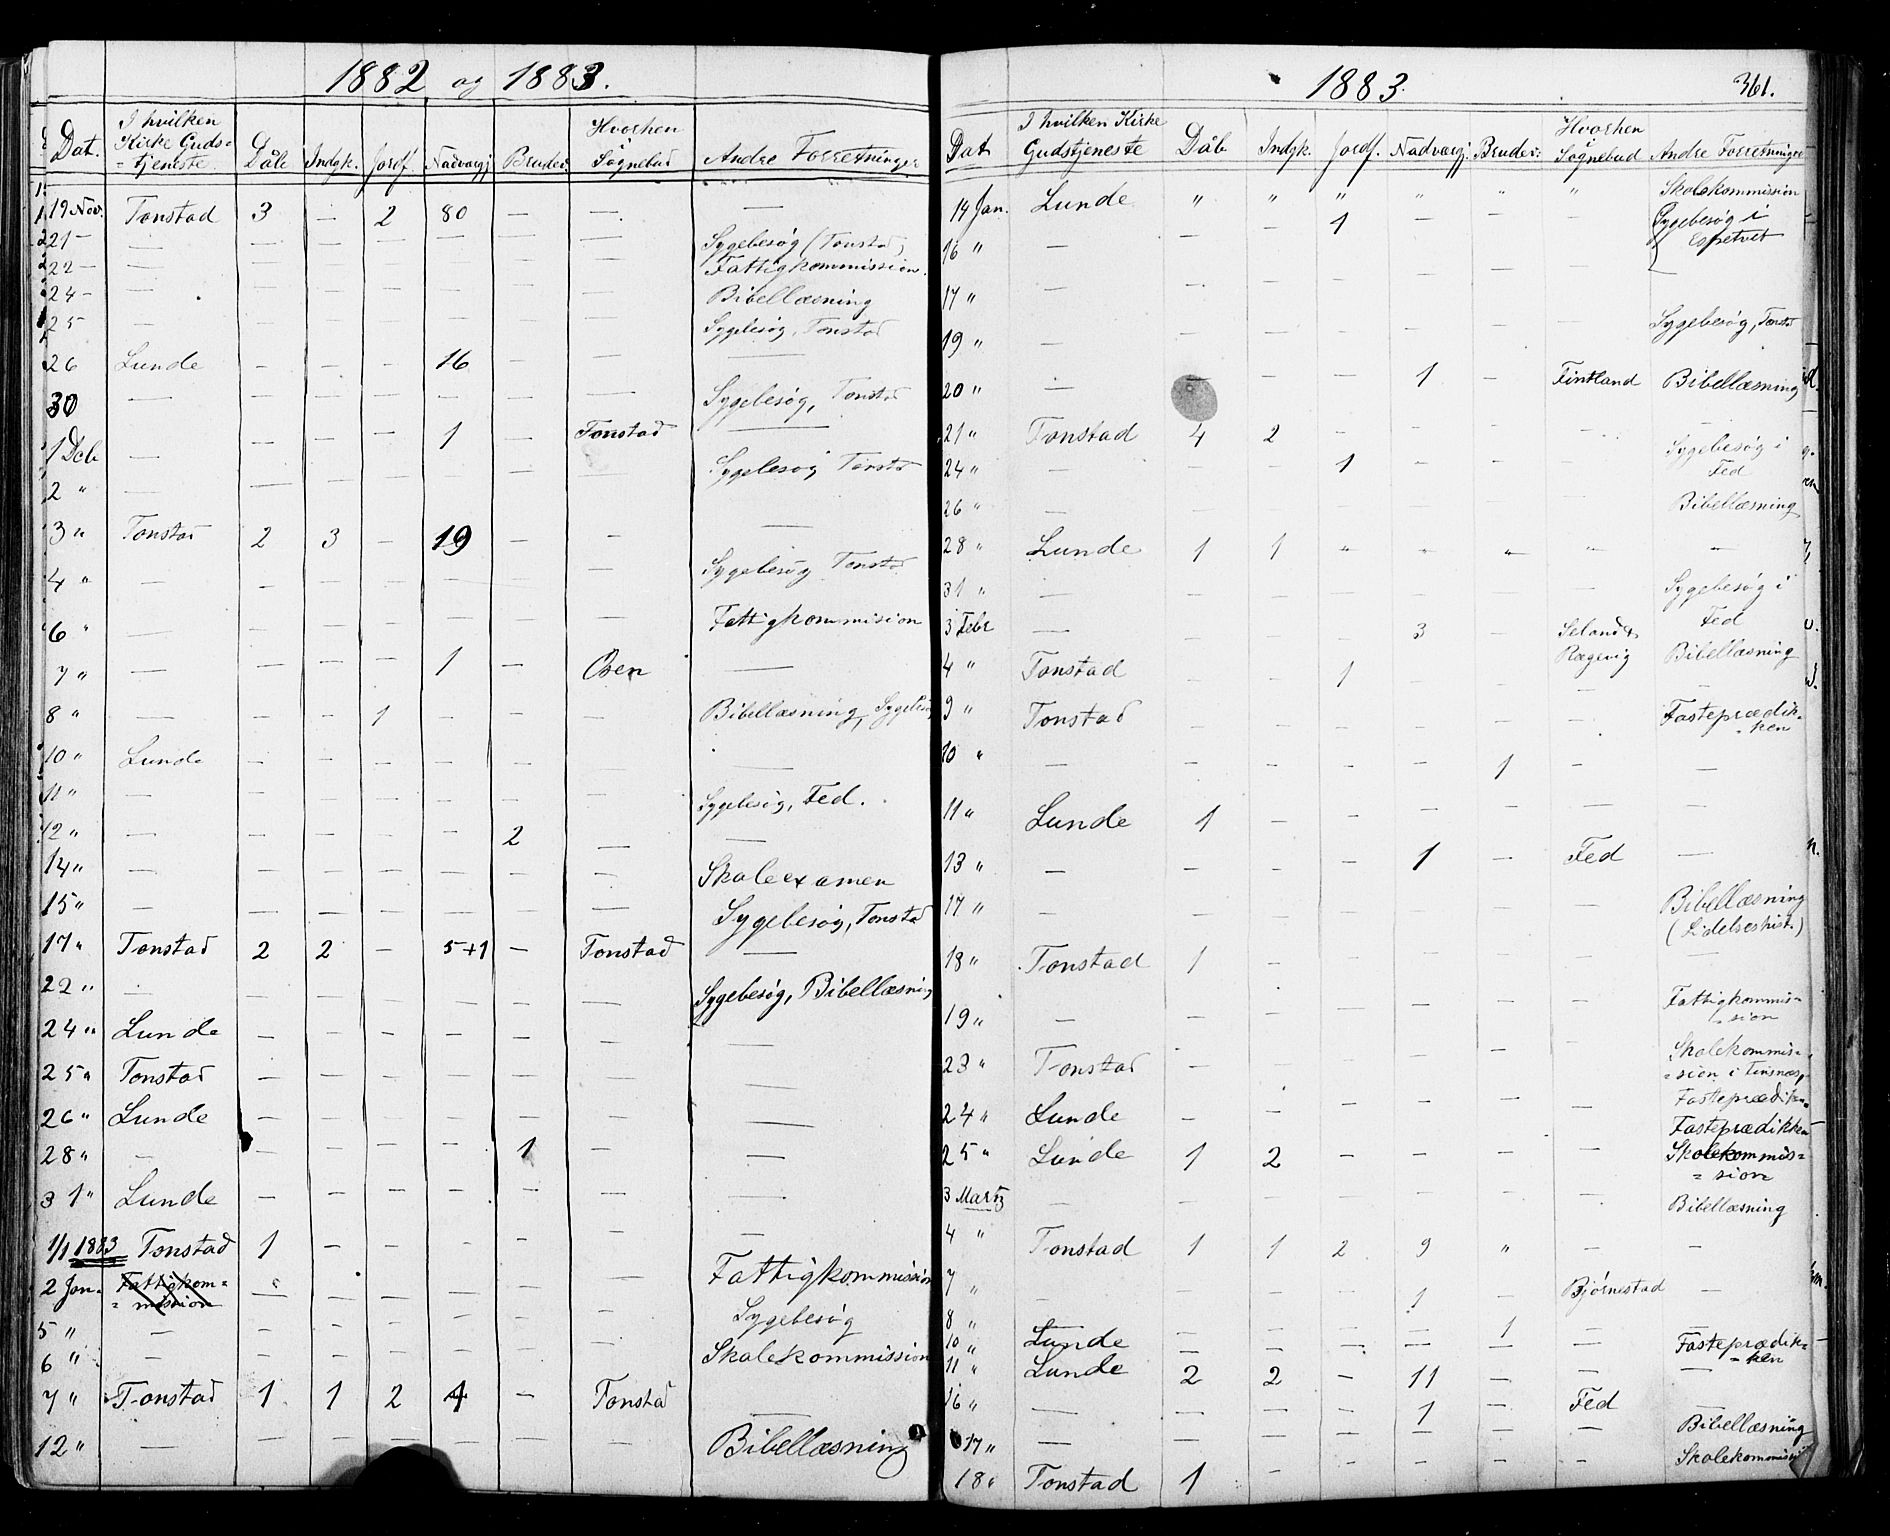 1882 og 1883.
Dat. | I hvilken Kirke Guds=tjeneste | Dåb | Indgk. | Jordf. | Nadvergj | Brudev. | Hvorhen Sognebud | Andre Forretninger
19 Nov. Tonstad 3 — 2 80 — — —
21 — — — — — — — — Sygebesøg (Tonstad)
22 — — — — — — — — Fattigkommission.
24 — — — — — — — — Bibellæsning
25 — — — — — — — Sygebesøg, Tonstad
26 Lunde — — — 16 — — —
30 — — — — — — — Sygebesøg, Tonstad
1 Dcb — — — — 1 — Tonstad —
2 " — — — — — — — Sygebesøg Tonstad
3 " Tonstad 2 3 — 19 — — —
4 " — — — — — — — Sygebesøg Tonstad
6 " — — — — — — — Fattigkommision
7 " — — — — 1 — Oven —
8 " — — — 1 — — — Bibellæsning, Sygebesøg
10 " Lunde — — — — — — —
11 " — — — — — — — Sygebesøg, Fed.
12 " — — — — — 2 — —
14 " — — — — — — — Skoleexamen
15 " — — — — — — — Sygebesøg, Tonstad
17 " Tonstad 2 2 — 5+1 — Tonstad —
22 " — — — — — — — Sygebesøg, Bibellæsning
24 " Lunde — — — — — — —
25 " Tonstad — — — — — — —
26 " Lunde — — — — — — —
28 " — — — — — 1 — —
31 " Lunde — — — — — — —
1/1 1883 Tonstad 1 — — — — — —
2 Jan. Fattigkom=mission — — — — — — Fattigkommission
5 " — — — — — — — Sygebesøg
6 " — — — — — — — Skolekommission
7 " Tonstad 1 1 2 4 — Tonstad —
12 " — — — — — — — Bibellæsning
1883. 361.
Dat | I hvilken Kirke Gudstjeneste | Dåb | Indgk. | Jordf. | Nadvergj. | Brudev. | Hvorhen Sognebud | Andre Forretninger
14 Jan. Lunde " " " " " " Skolekommission
16 " — — — 1 — — — Sygebesøg i
17 " — — — — — — —
19 " — — — — — — — Sygebesøg, Tonstad
20 " — — — — 1 — Fintland Bibellæsning
21 " Tonstad 4 2 — — — —
24 " — — — 1 — — — Sygebesøg i Fed
26 " — — — — — — — Bibellæsning
28 " Lunde 1 1 " " " " "
31 " — — — — — — — Sygebesøg i Fed
3 Febr — — — — 3 — Seland & Rægevig Bibellæsning
4 " Tonstad — — 1 — — —
9 " Tonstad — — — — — — Fasteprædik=ken
10 " — — — — — 1 — —
11 " Lunde 1 — — — — — —
13 " — — — — 1 — Fed —
17 " — — — — — — — Bibellæsning (Lidelseshist.)
18 " Tonstad 1 — — — — — —
19 " — — — — — — — Fattigkommis=sion
23 " Tonstad — — — — — — Skolekommis=sion i
Fasteprædiken
24 " Lunde — — — — — — Fasteprædikken
25 " Lunde 1 2 — — — — Skolekommis=sion
3 Martz — — — — — — — Bibellæsning
4 " Tonstad 1 1 2 9 " — —
7 " — — — — 1 — Bjørnestad —
8 " — — — — — 1 —
10 " Lunde — — — — — — Fasteprædik=ken
11 " Lunde 2 2 — 11 — — —
16 " — — — — 1 — Fed —
17 " — — — — — — — Bibellæsning
18 " Tonstad 1 — — — — — Skolekommissi